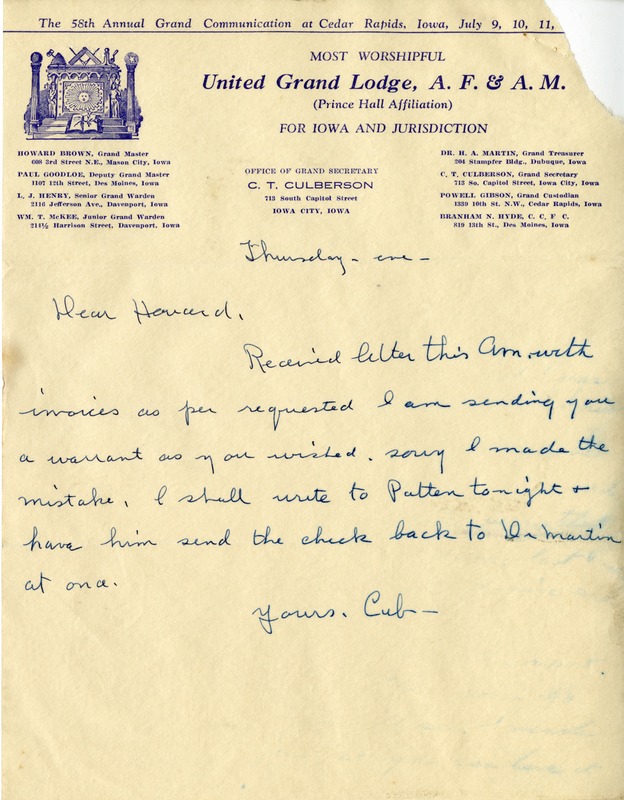 The 58th Annual Grand Communication at Cedar Rapids, Iowa, July 9, 10, 11,
MOST WORSHIPFUL
United Grand Lodge, A. F. & A. M.
(Prince Hall Affiliation)
FOR IOWA AND JURISDICTION
HOWARD BROWN, Grand Master
608 3rd Street N.E., Mason City, Iowa
PAUL GOODLOE, Deputy Grand Master
1107 12th Street, Des Moines, Iowa
L. J. HENRY, Senior Grand Warden
2116 Jefferson Ave., Davenport, Iowa
WM. T. McKEE, Junior Grand Warden
211½ Harrison Street, Davenport, Iowa
OFFICE OF GRAND SECRETARY
C. T. CULBERSON
713 South Capitol Street
IOWA CITY, IOWA
DR. H. A. MARTIN, Grand Treasurer
204 Stampfer Bldg., Dubuque, Iowa
C. T. CULBERSON, Grand Secretary
713 So. Capitol Street, Iowa City, Iowa
POWELL GIBSON, Grand Custodian
1339 10th St. N.W., Cedar Rapids, Iowa
BRANHAM N. HYDE, C. C. F. C.
819 13th St., Des Moines, Iowa
Thursday - eve -
Dear Howard,
Received letter this Am. with
invoices as per requested I am sending you
a warrant as you wished. sorry I made the
mistake. I shall write to Patten tonight &
have him send the check back to Dr Martin
at once.
Yours. Cub -